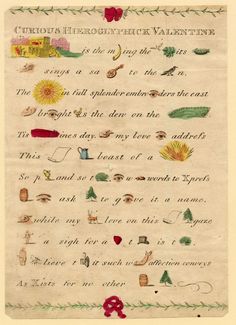 CURIOUS HIEROGLYPHICK VALENTINE
is the m ing the its
sings a sa to the n,
The in full splendor embr ders the east
br ght is the dew on the
Tis ines day. my love address
This beast of a
So p and so t w words to Xpress
ask to g ve it a name.
while my love on this gaze
a sigh for a t is t
lieve t it such w affection conveys
As Xists for no other